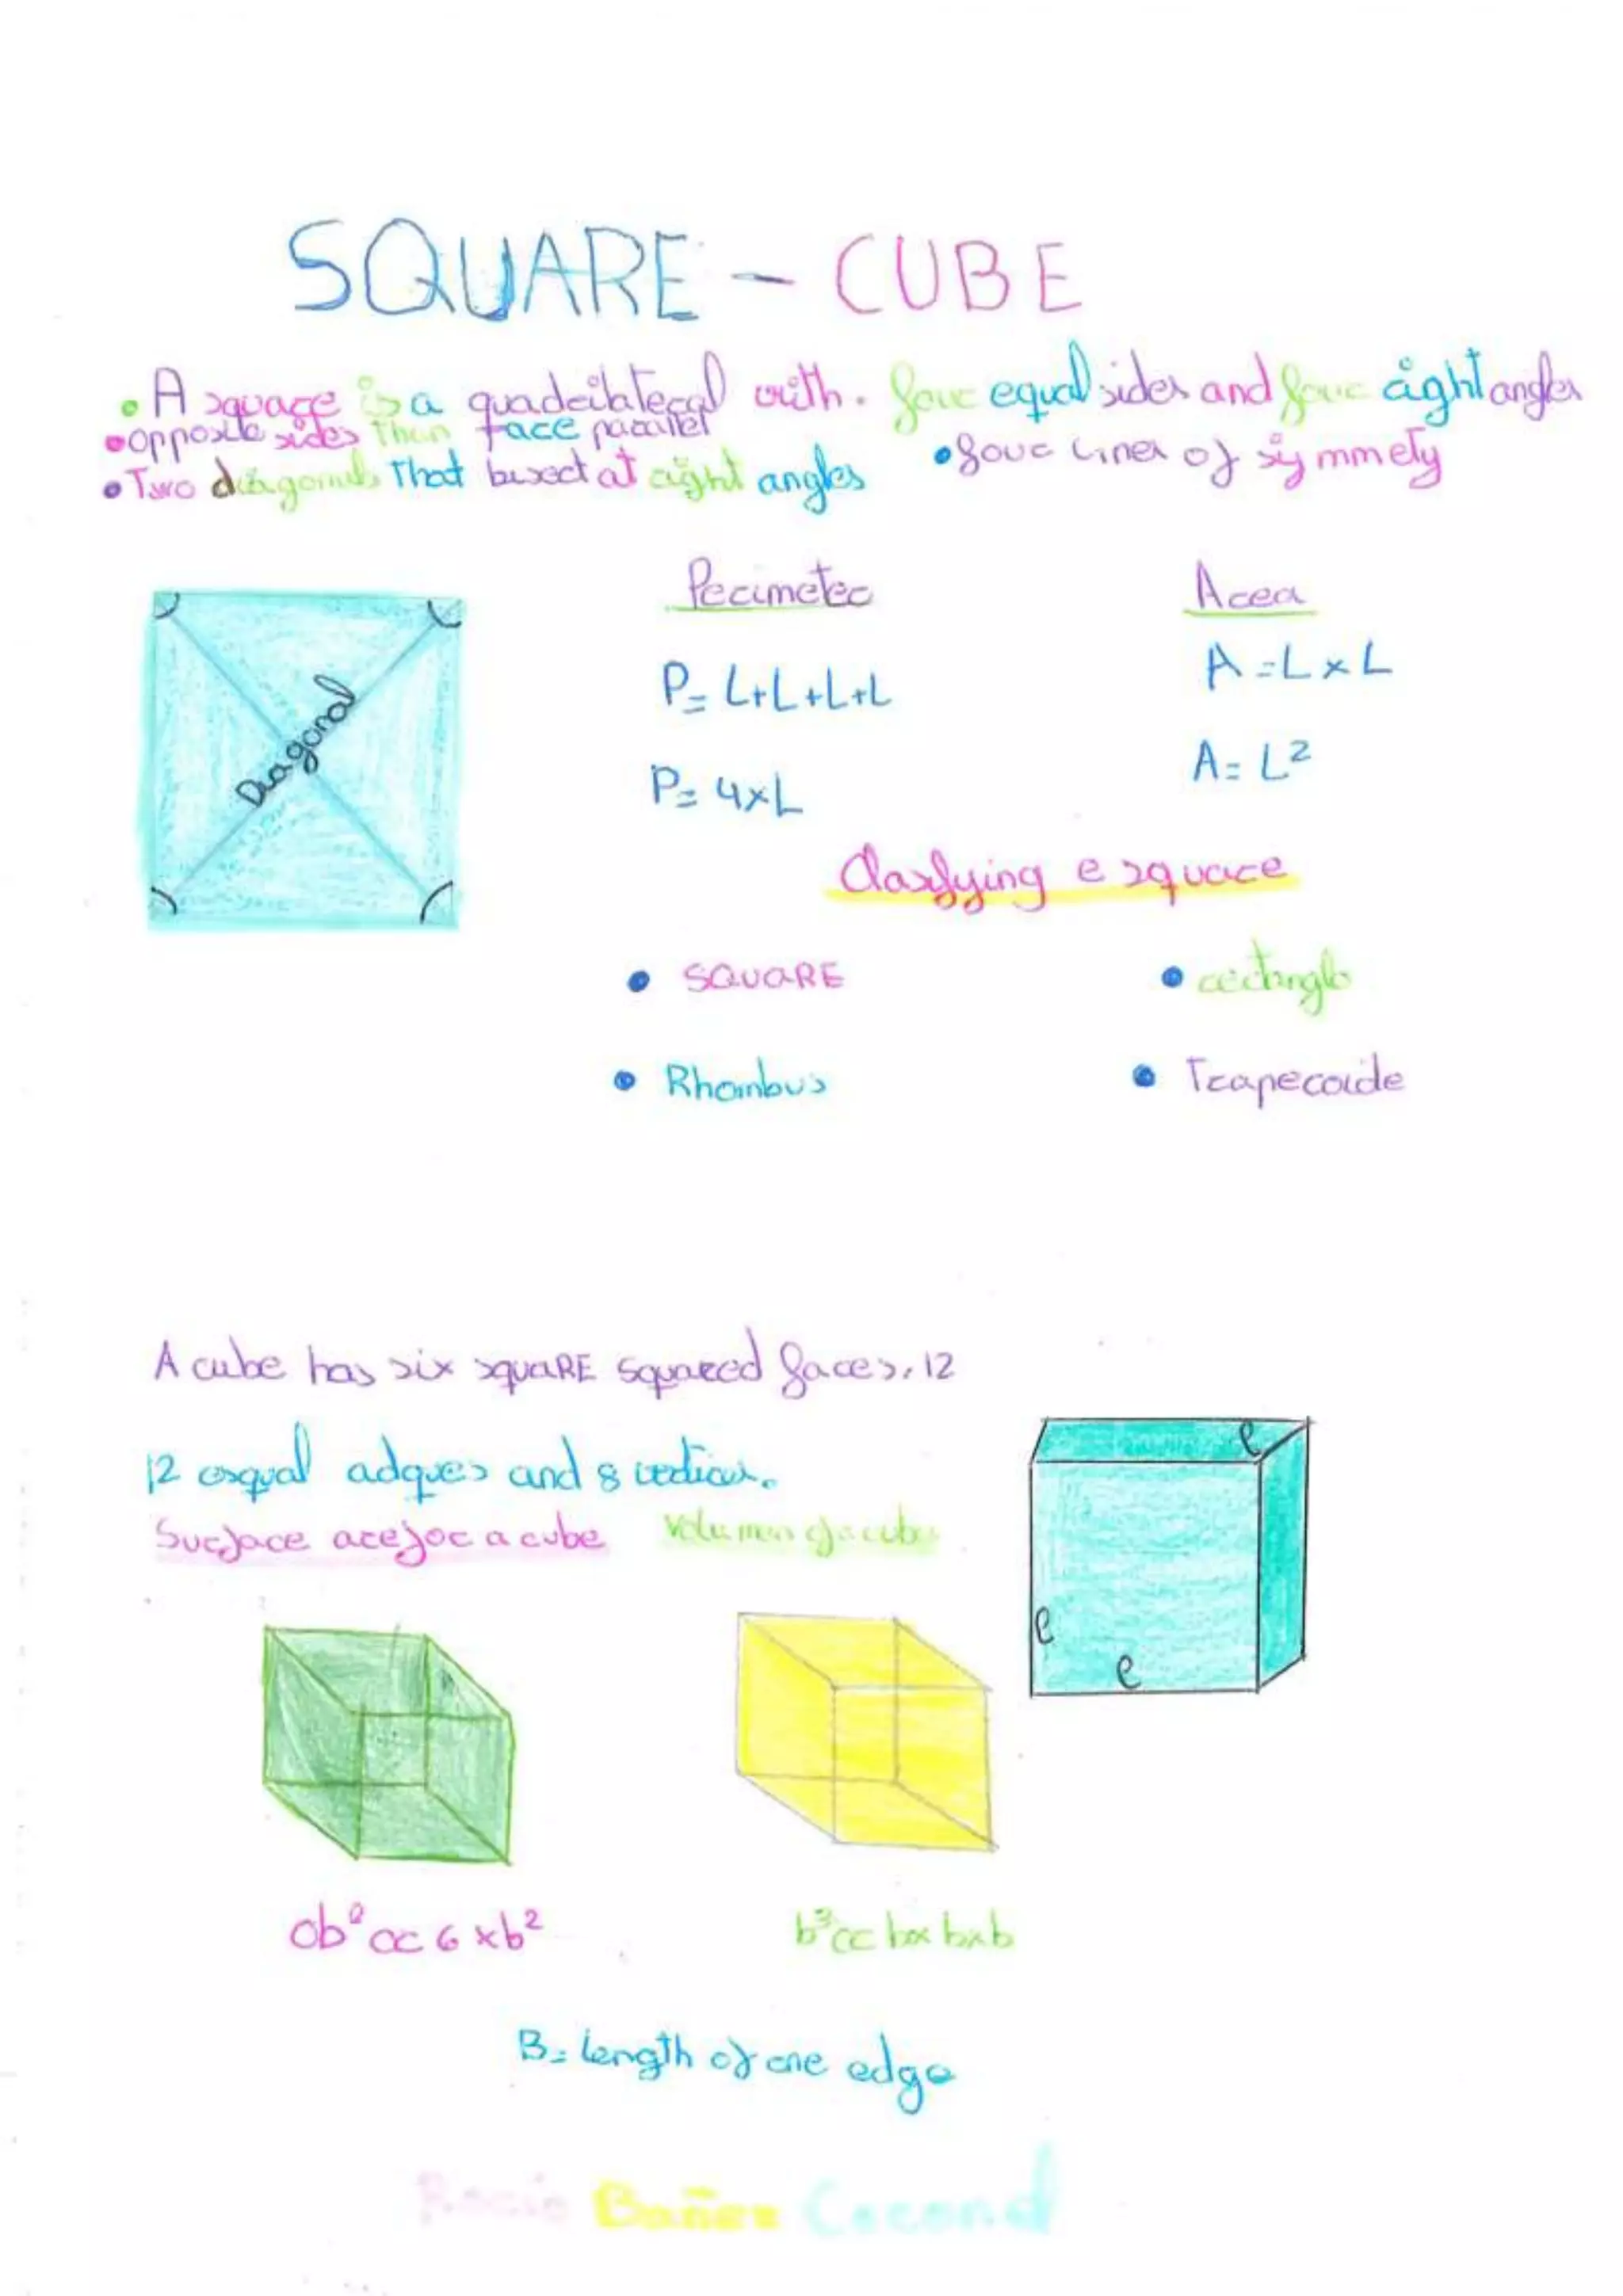 SQUARE - CUBE
• A square is a quadrilateral with. four equal sides and four right angles
• opposite sides than face parallel
• four lines of symmety
• Two diagonals that bisect at right angles
Diagonal
Perimeter
Area
P= L+L+L+L
A=L×L
P= 4×L
A= L²
Clasifying e square
• SQUARE
• rectangle
• Rhombus
• Trapecoide
A cube has six squaRE squared faces, 12
12 esqual adques and 8 vertices.
Surface arefor a cube
Volumen of a cube
e
e
e
6 x b²
b³ or bxbxb
B= length of one edge
Rocío Bañez Coronel